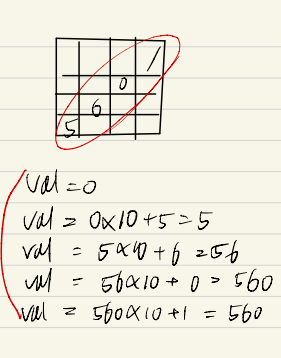 1
0
6
5
val = 0
val = 0x10+5 = 5
val = 5x10+6 = 56
val = 56x10+0 = 560
val = 560x10+1 = 560